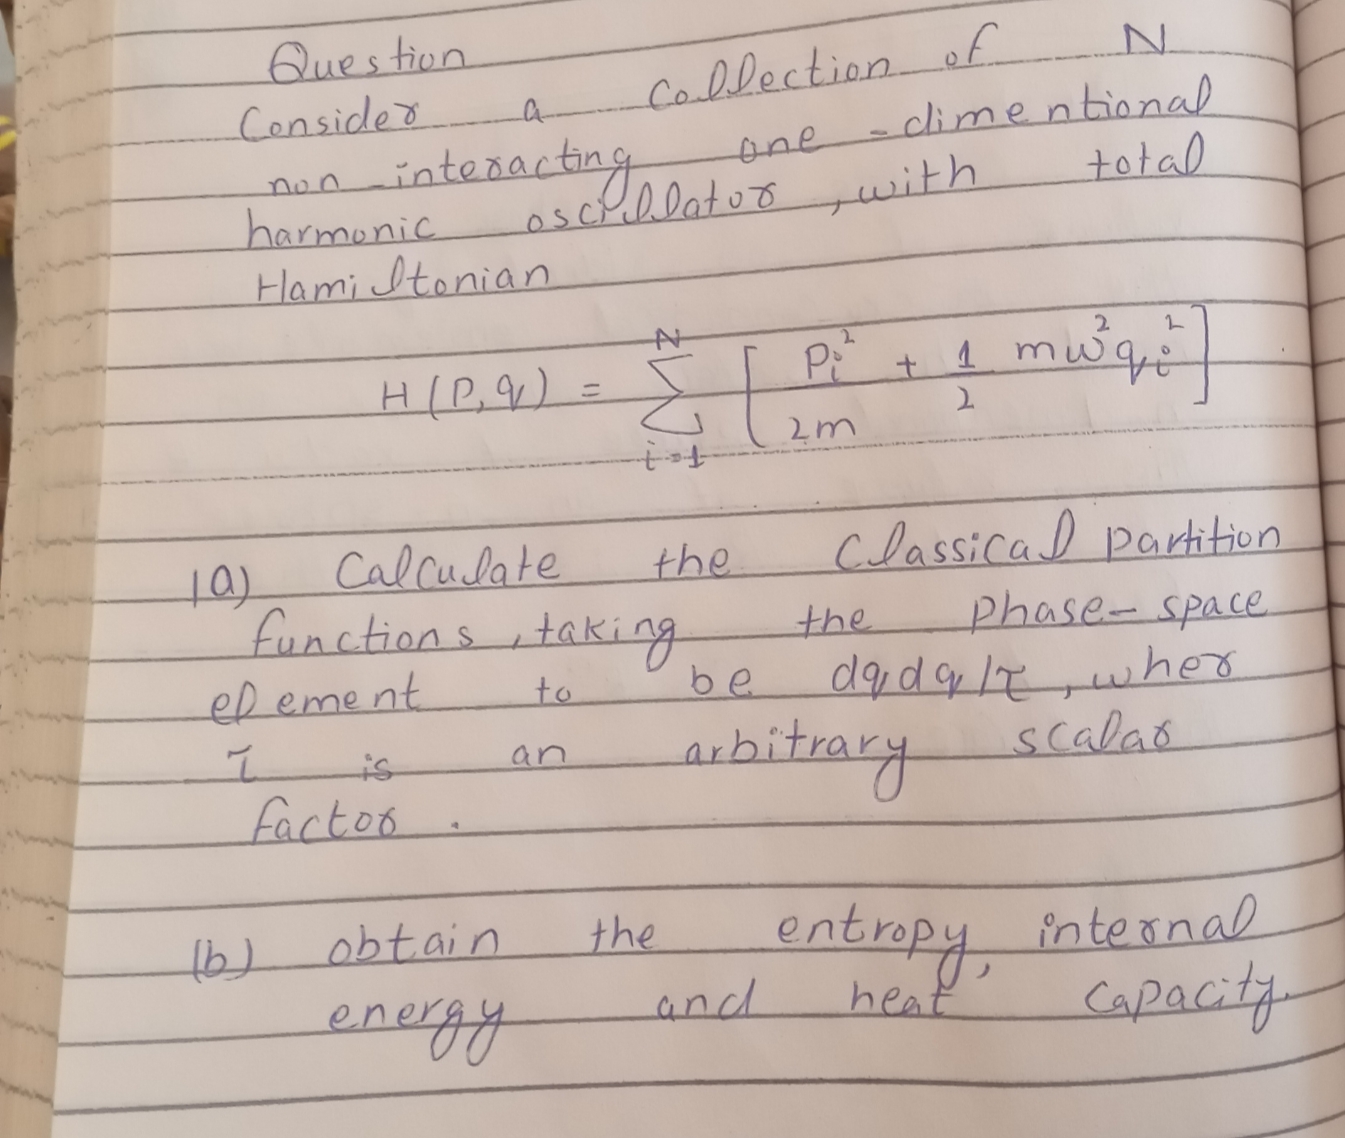 Question
Consider a collection of N
non-interacting one-dimentional
harmonic oscillator, with total
Hamiltonian
H(P,q) = \sum_{i=1}^{N} [ \frac{P_i^2}{2m} + \frac{1}{2} mω^2 q_i^2 ]
(a) Calculate the Classical partition
functions, taking the phase-space
element to be dqdq/τ, wher
τ is an arbitrary scalar
factor.
(b) obtain the entropy, internal
energy and heat capacity.